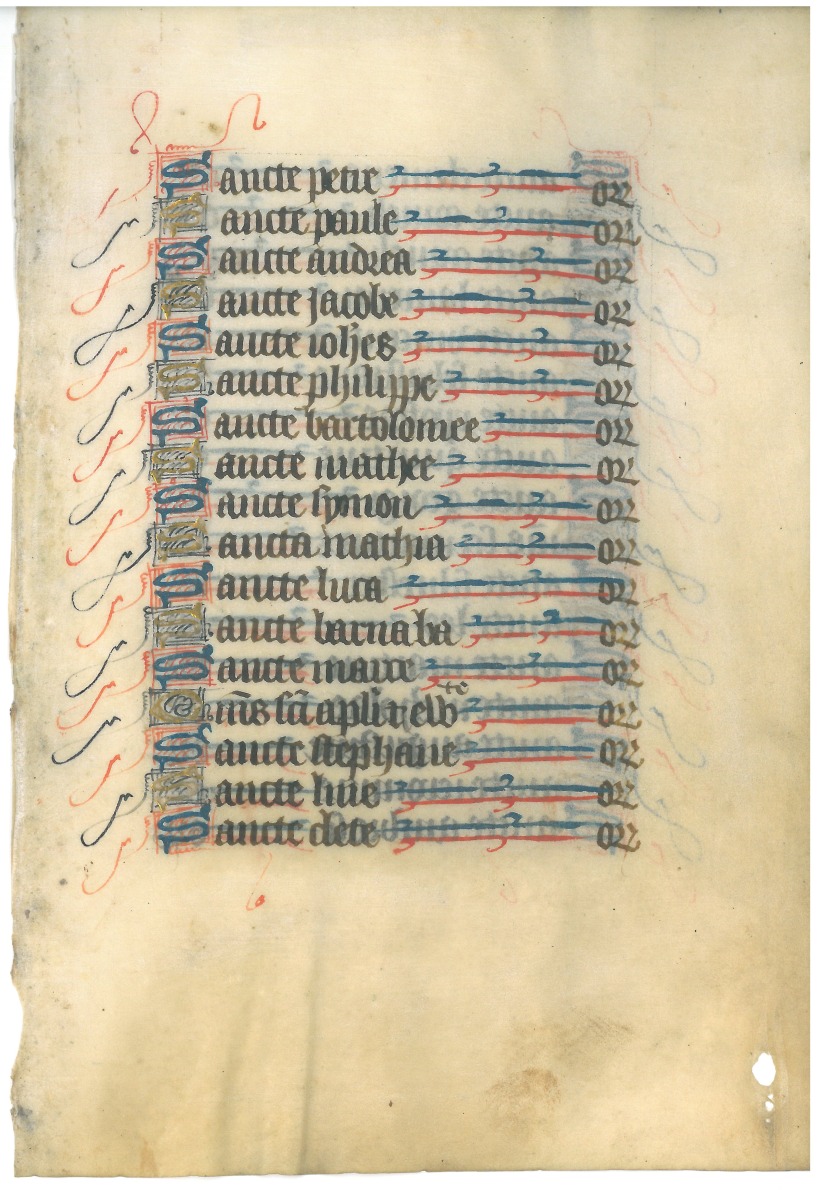 Sancte petre or
Sancte paule or
Sancte andrea or
Sancte jacobe or
Sancte iohes or
Sancte philippe or
Sancte bartolomee or
Sancte mathee or
Sancte symon or
Sancta mathia or
Sancte luca or
Sancte barnaba or
Sancte marce or
Oms sci apli et ew te or
Sancte stephane or
Sancte line or
Sancte clete or